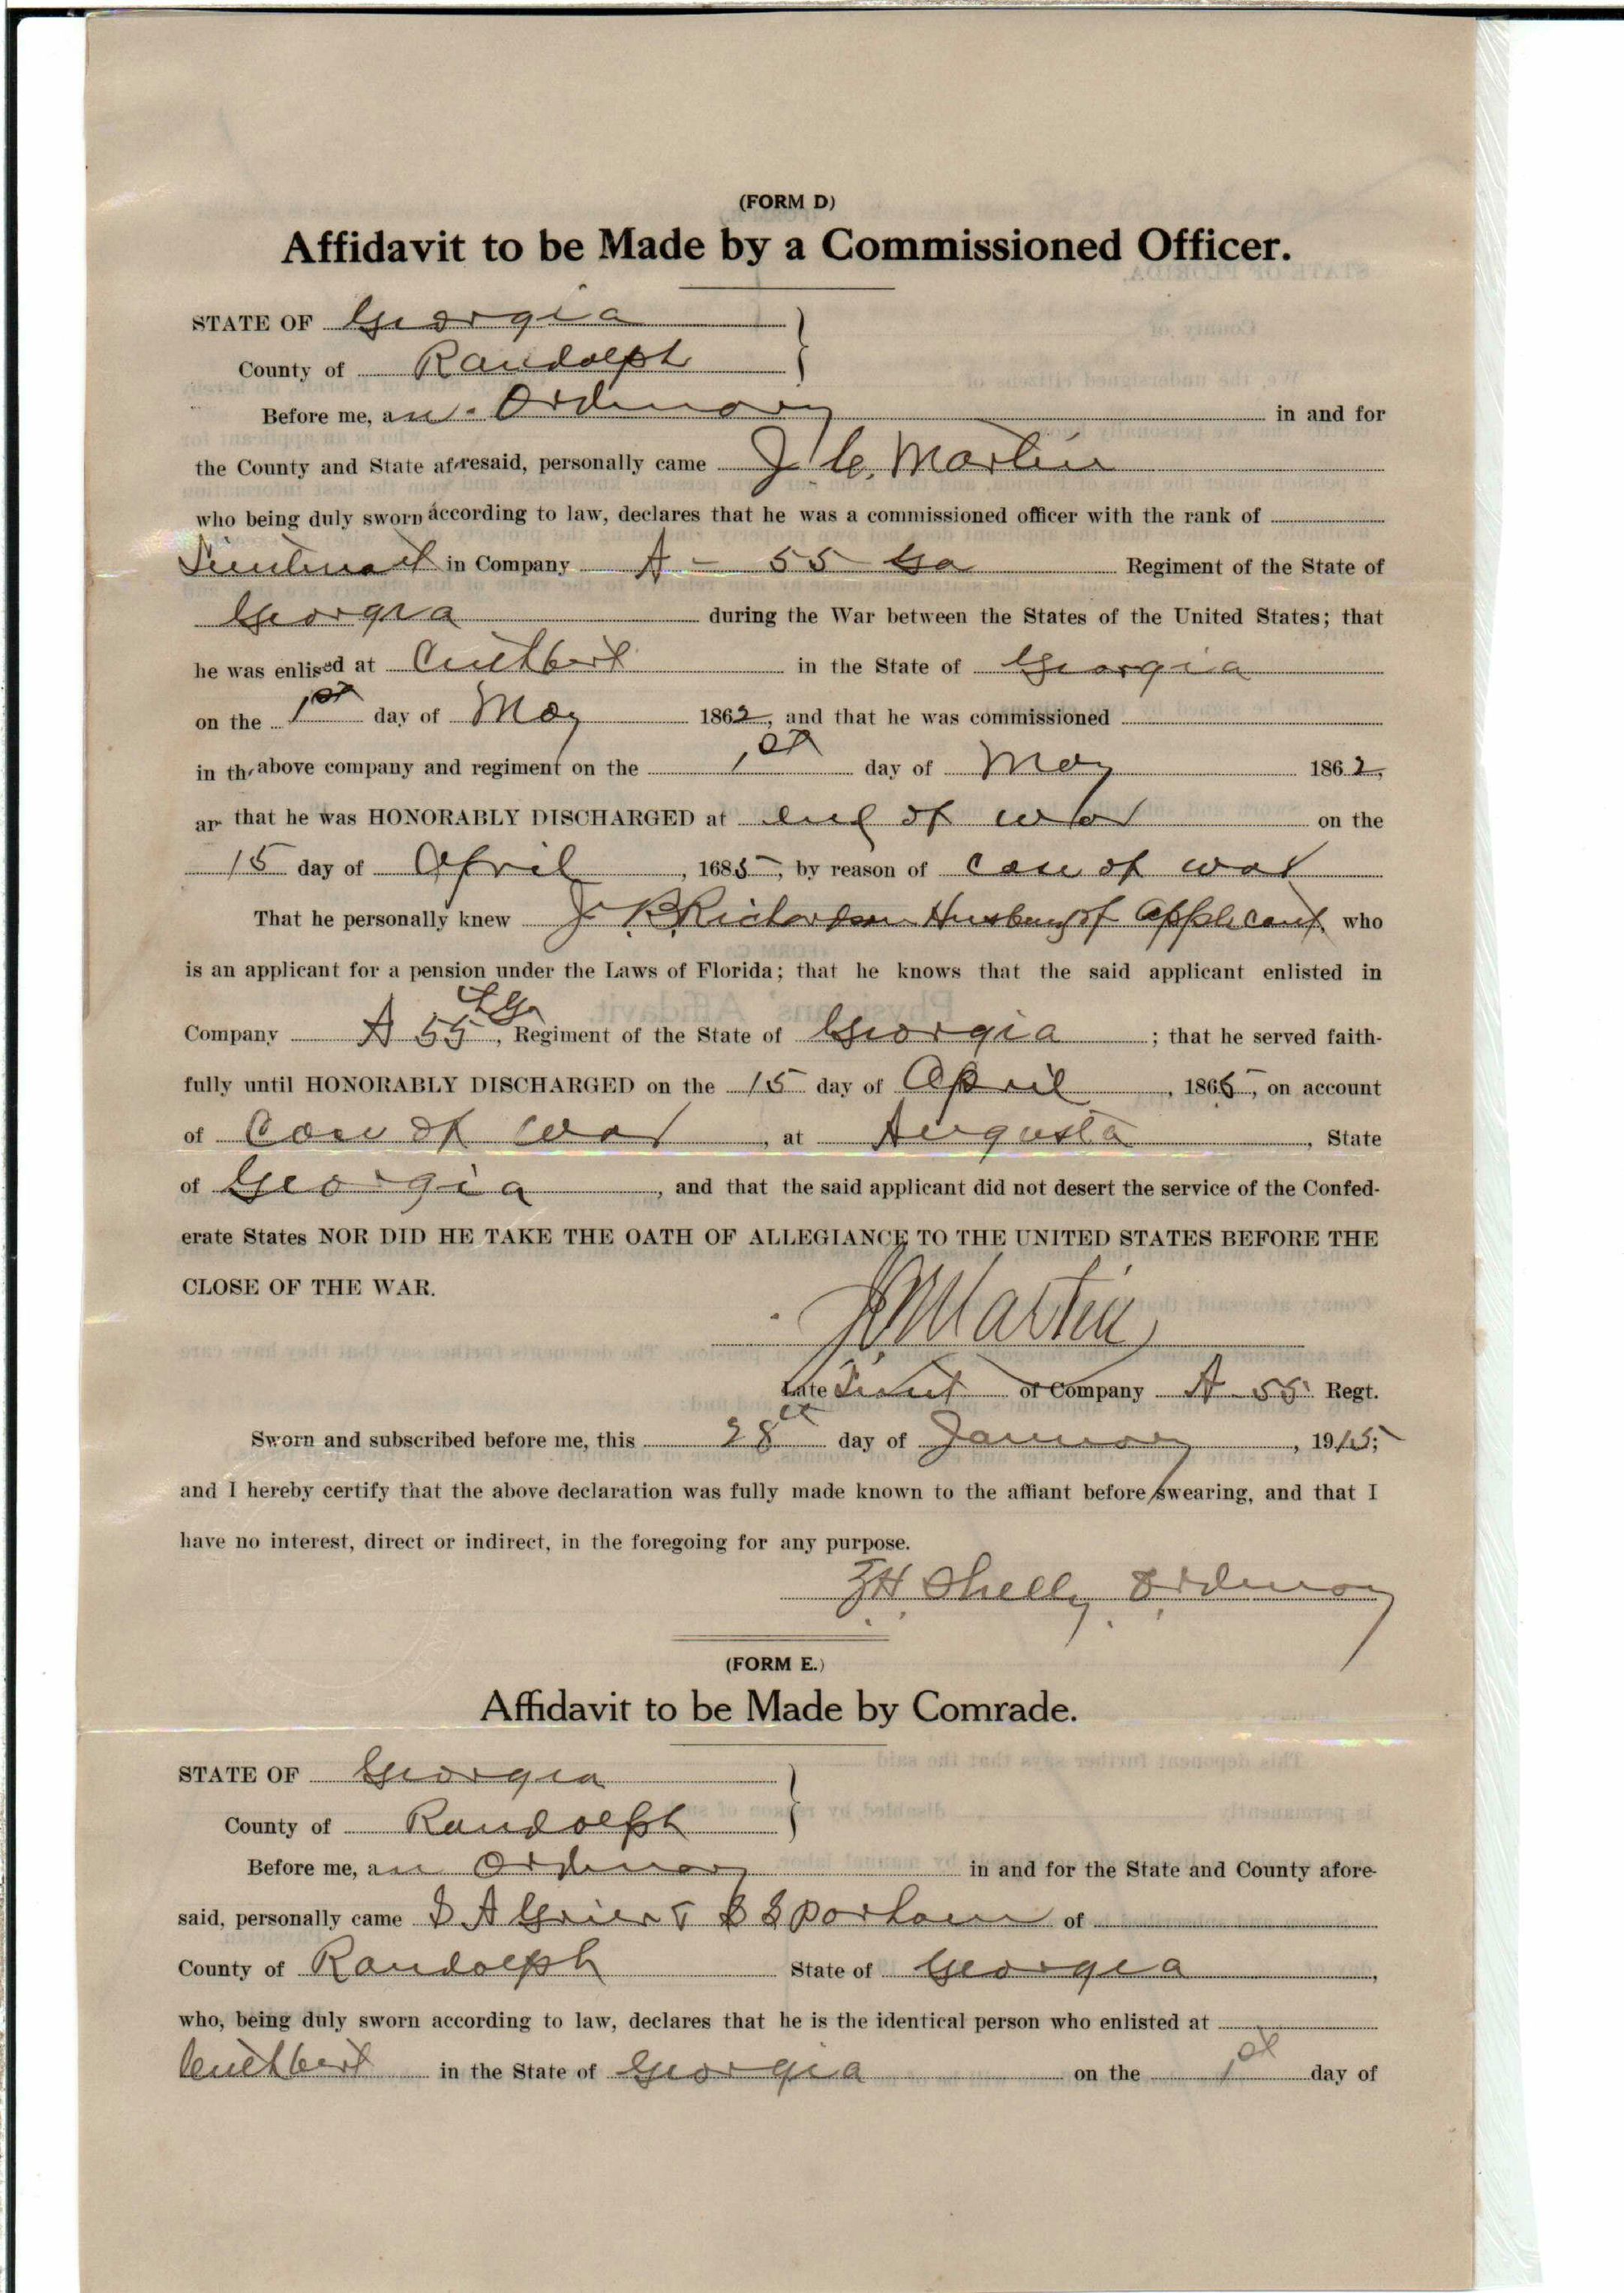 (FORM D)
Affidavit to be Made by a Commissioned Officer.
STATE OF Georgia
County of Randolph
Before me, an Ordinary in and for
the County and State aforesaid, personally came J. C. Martin
who being duly sworn according to law, declares that he was a commissioned officer with the rank of
Lieutenant in Company A - 55 Ga Regiment of the State of
Georgia during the War between the States of the United States; that
he was enlised at Cuthbert in the State of Georgia
on the 1st day of May 1862, and that he was commissioned
in the above company and regiment on the 1st day of May 1862,
an that he was HONORABLY DISCHARGED at end of war on the
15 day of April, 1865, by reason of of war
That he personally knew J. B. Richardson Husband of Applicant who
is an applicant for a pension under the Laws of Florida; that he knows that the said applicant enlisted in
Company A 55 Ga, Regiment of the State of Georgia; that he served faith-
fully until HONORABLY DISCHARGED on the 15 day of April, 1865, on account
of of war, at Augusta, State
of Georgia, and that the said applicant did not desert the service of the Confed-
erate States NOR DID HE TAKE THE OATH OF ALLEGIANCE TO THE UNITED STATES BEFORE THE
CLOSE OF THE WAR.
J C Martin
Late Lieut of Company A 55 Regt.
Sworn and subscribed before me, this 28th day of January, 1915;
and I hereby certify that the above declaration was fully made known to the affiant before swearing, and that I
have no interest, direct or indirect, in the foregoing for any purpose.
Shelly Ordinary
(FORM E.)
Affidavit to be Made by Comrade.
STATE OF Georgia
County of Randolph
Before me, an Ordinary in and for the State and County afore-
said, personally came A Grier & of
County of Randolph State of Georgia,
who, being duly sworn according to law, declares that he is the identical person who enlisted at
Cuthbert in the State of Georgia on the 1st day of